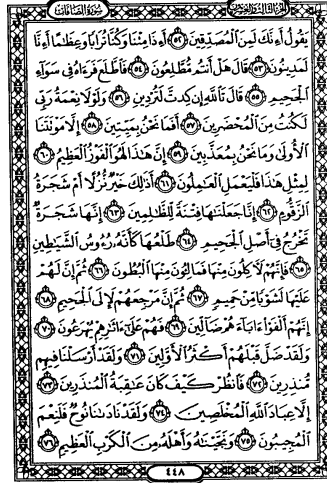 سُورَةُ الصَّافَّاتِ الجُزْءُ الثَّالِثُ وَالعِشْرُونَ
يَقُولُ أَءِنَّكَ لَمِنَ ٱلْمُصَدِّقِينَ ٥٢ أَءِذَا مِتْنَا وَكُنَّا تُرَابًا وَعِظَٰمًا أَءِنَّا
لَمَدِينُونَ ٥٣ قَالَ هَلْ أَنتُم مُّطَّلِعُونَ ٥٤ فَٱطَّلَعَ فَرَءَاهُ فِي سَوَآءِ
ٱلْجَحِيمِ ٥٥ قَالَ تَٱللَّهِ إِن كِدتَّ لَتُرْدِينِ ٥٦ وَلَوْلَا نِعْمَةُ رَبِّي
لَكُنتُ مِنَ ٱلْمُحْضَرِينَ ٥٧ أَفَمَا نَحْنُ بِمَيِّتِينَ ٥٨ إِلَّا مَوْتَتَنَا
ٱلْأُولَىٰ وَمَا نَحْنُ بِمُعَذَّبِينَ ٥٩ إِنَّ هَٰذَا لَهُوَ ٱلْفَوْزُ ٱلْعَظِيمُ ٦٠
لِمِثْلِ هَٰذَا فَلْيَعْمَلِ ٱلْعَٰمِلُونَ ٦١ أَذَٰلِكَ خَيْرٌ نُّزُلًا أَمْ شَجَرَةُ
ٱلزَّقُّومِ ٦٢ إِنَّا جَعَلْنَٰهَا فِتْنَةً لِّلظَّٰلِمِينَ ٦٣ إِنَّهَا شَجَرَةٌ
تَخْرُجُ فِيٓ أَصْلِ ٱلْجَحِيمِ ٦٤ طَلْعُهَا كَأَنَّهُۥ رُءُوسُ ٱلشَّيَٰطِينِ
٦٥ فَإِنَّهُمْ لَءَاكِلُونَ مِنْهَا فَمَالِـُٔونَ مِنْهَا ٱلْبُطُونَ ٦٦ ثُمَّ إِنَّ لَهُمْ
عَلَيْهَا لَشَوْبًا مِّنْ حَمِيمٍ ٦٧ ثُمَّ إِنَّ مَرْجِعَهُمْ لَإِلَى ٱلْجَحِيمِ ٦٨
إِنَّهُمْ أَلْفَوْا۟ ءَابَآءَهُمْ ضَآلِّينَ ٦٩ فَهُمْ عَلَىٰٓ ءَاثَٰرِهِمْ يُهْرَعُونَ ٧٠
وَلَقَدْ ضَلَّ قَبْلَهُمْ أَكْثَرُ ٱلْأَوَّلِينَ ٧١ وَلَقَدْ أَرْسَلْنَا فِيهِم
مُّنذِرِينَ ٧٢ فَٱنظُرْ كَيْفَ كَانَ عَٰقِبَةُ ٱلْمُنذَرِينَ ٧٣
إِلَّا عِبَادَ ٱللَّهِ ٱلْمُخْلَصِينَ ٧٤ وَلَقَدْ نَادَىٰنَا نُوحٌ فَلَنِعْمَ
ٱلْمُجِيبُونَ ٧٥ وَنَجَّيْنَٰهُ وَأَهْلَهُۥ مِنَ ٱلْكَرْبِ ٱلْعَظِيمِ ٧٦
٤٤٨